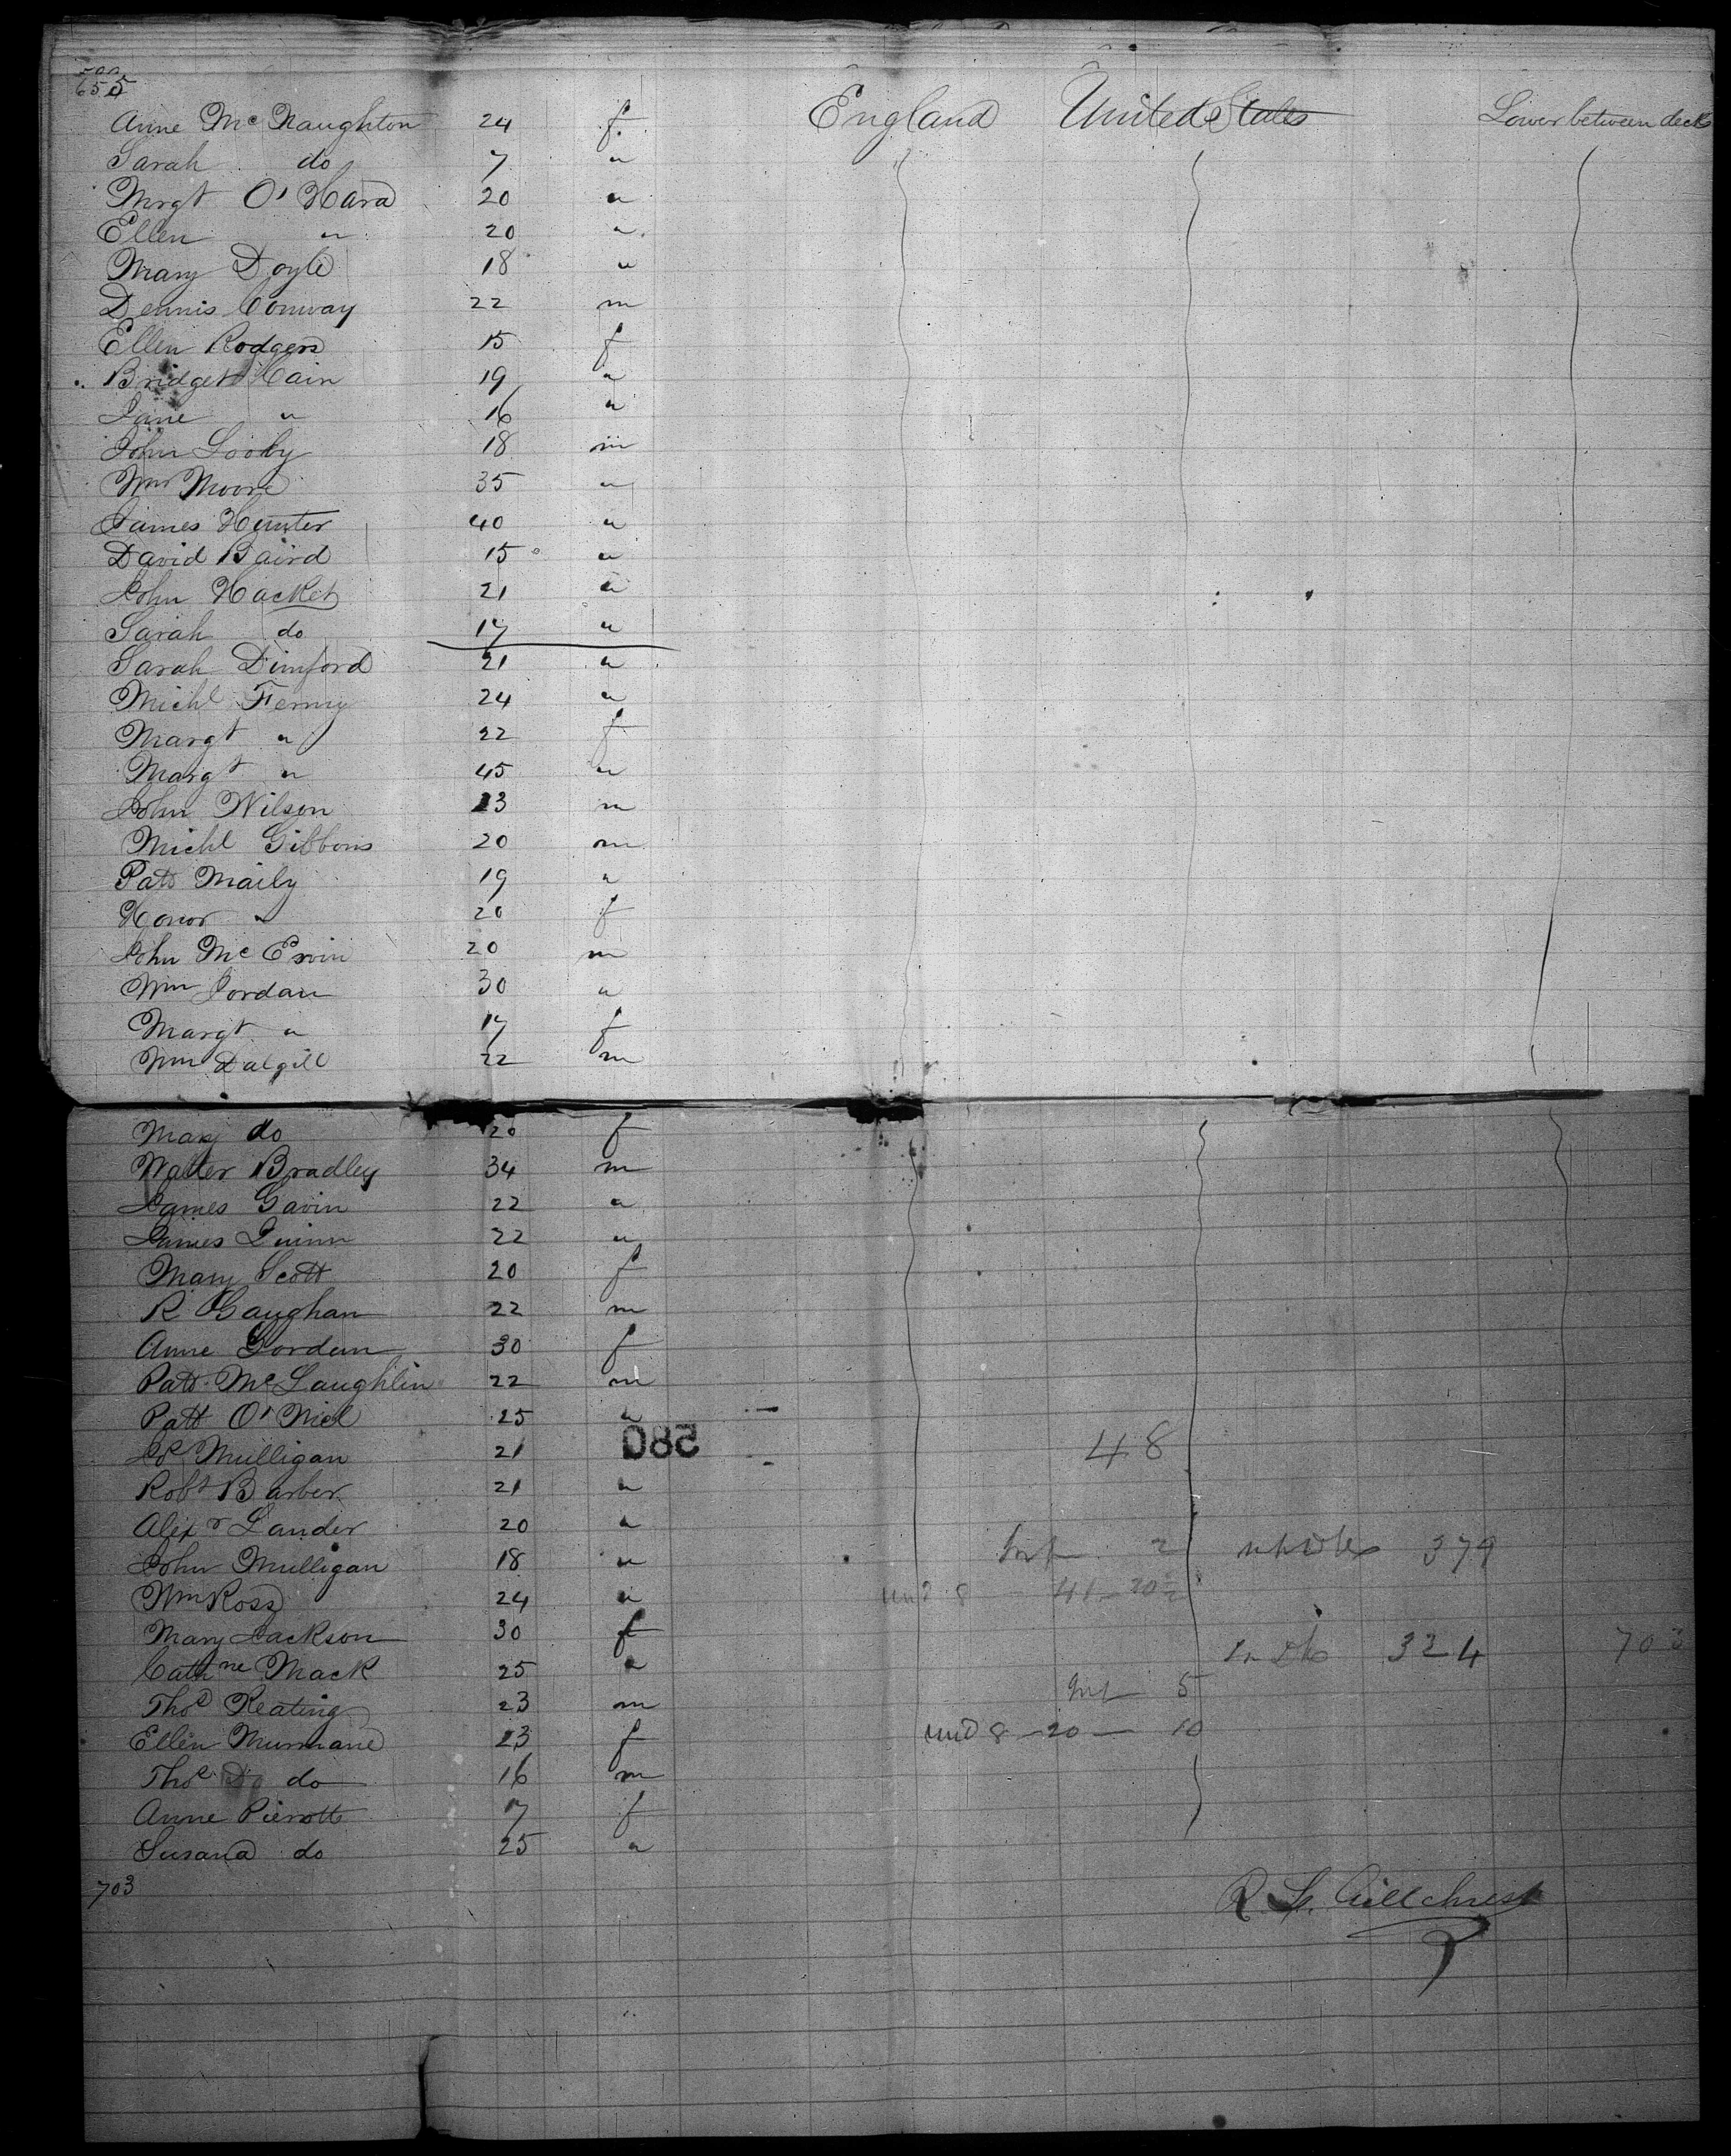 655
Anne McNaughton 24 f. England United States Lower between decks
Sarah do 7 "
Mrgt O'Hara 20 "
Ellen " 20 "
Mary Doyle 18 "
Dennis Conway 22 m
Ellen Rodgers 15 f
Bridget Cain 19 "
Jane " 16 "
John Looby 18 m
Wm Moore 35 "
James Hunter 40 "
David Baird 15 "
John Hacket 21 "
Sarah do 17 "
Sarah Dimford 21 "
Michl Ferny 24 "
Margt " 22 f
Margt " 45 "
John Wilson 23 m
Michl Gibbons 20 m
Patt Maily 19 "
Honor " 20 f
John McErvin 20 m
Wm Jordan 30 "
Margt " 17 f
Wm Dalgill 22 m
Mary do 20 f
Walter Bradley 34 m
James Gavin 22 "
James Quinn 22 "
Mary Scott 20 f
R Gaughan 22 m
Anne Gordun 30 f
Patt McLaughlin 22 m
Patt O'Niel 25 "
Jos Mulligan 21 580 48
Robt Barber 21 "
Alexr Lander 20 "
John Mulligan 18 " Inf 2 379
Wm Ross 24 " und 8 41 - 20½
Mary Jackson 30 f 324 703
Cathne Mack 25 "
Thos Keating 23 m Inf 5
Ellen Murnane 23 f und 8 - 20 - 10
Thos do 16 m
Anne Pierrott 7 f
Susana do 25 "
703 R. L. Gillchrest